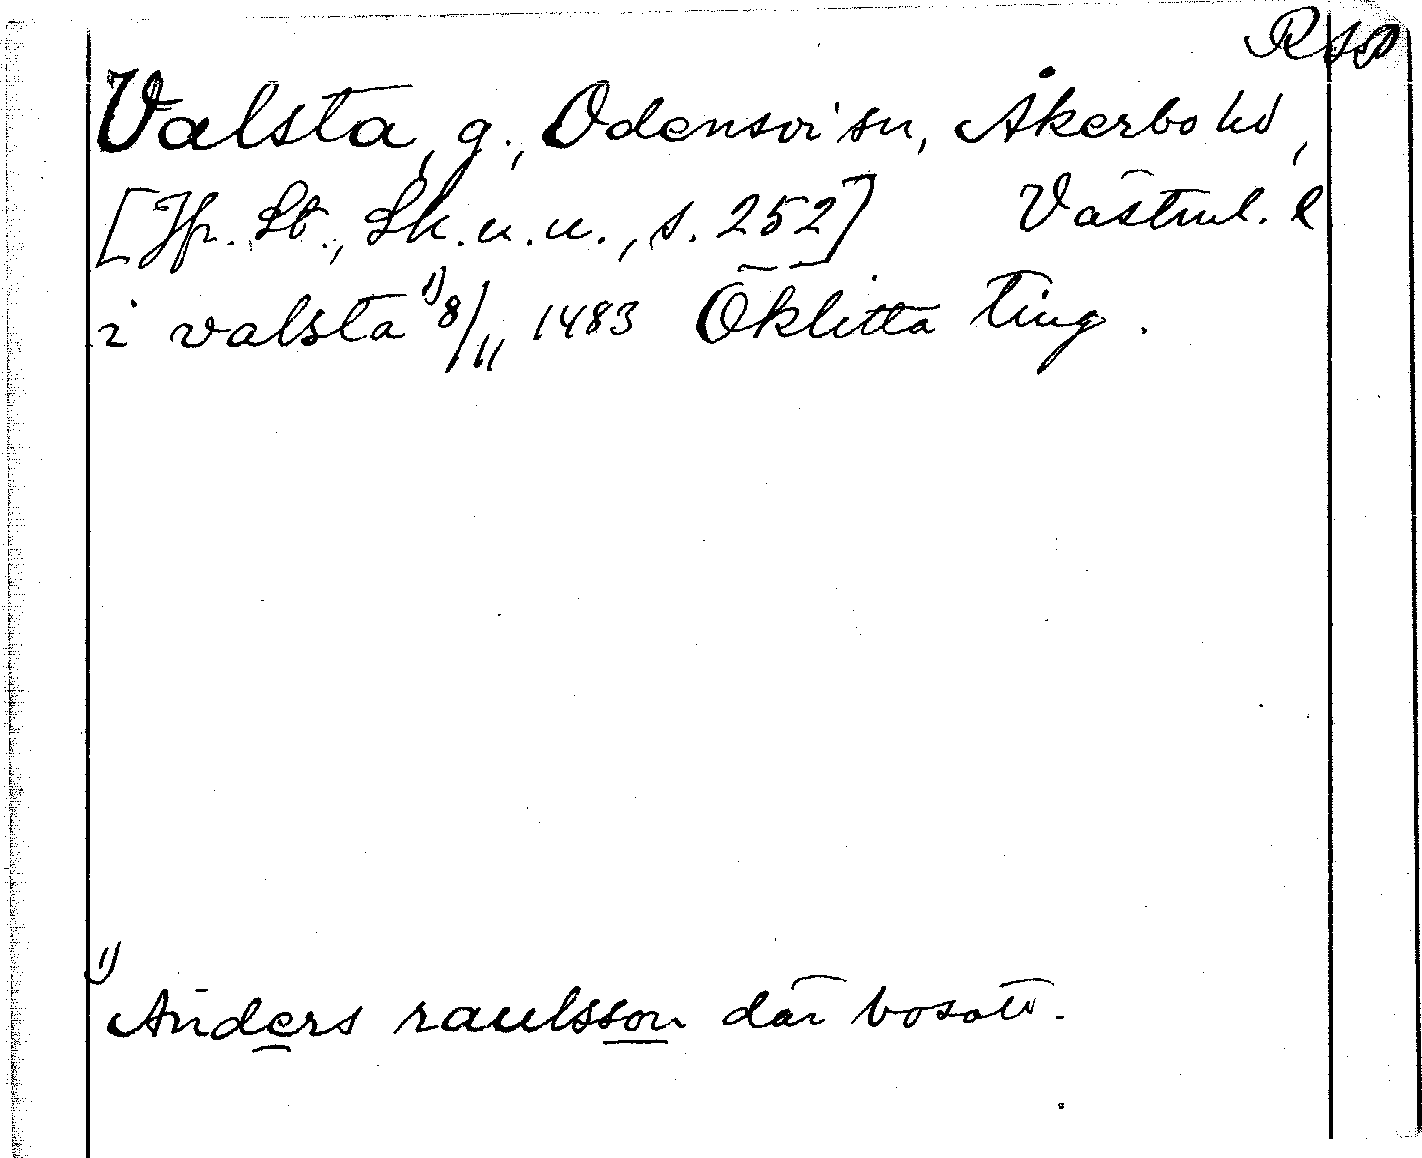 RAP
Valsta, g., Odensvi sn, Åkerbo hd,
[Jfr. St., Sk. u. u., s. 252] Västml. l
i valsta 1) 8/11 1483 Öklitta ting.
1)
Anders raulsson där bosatt.